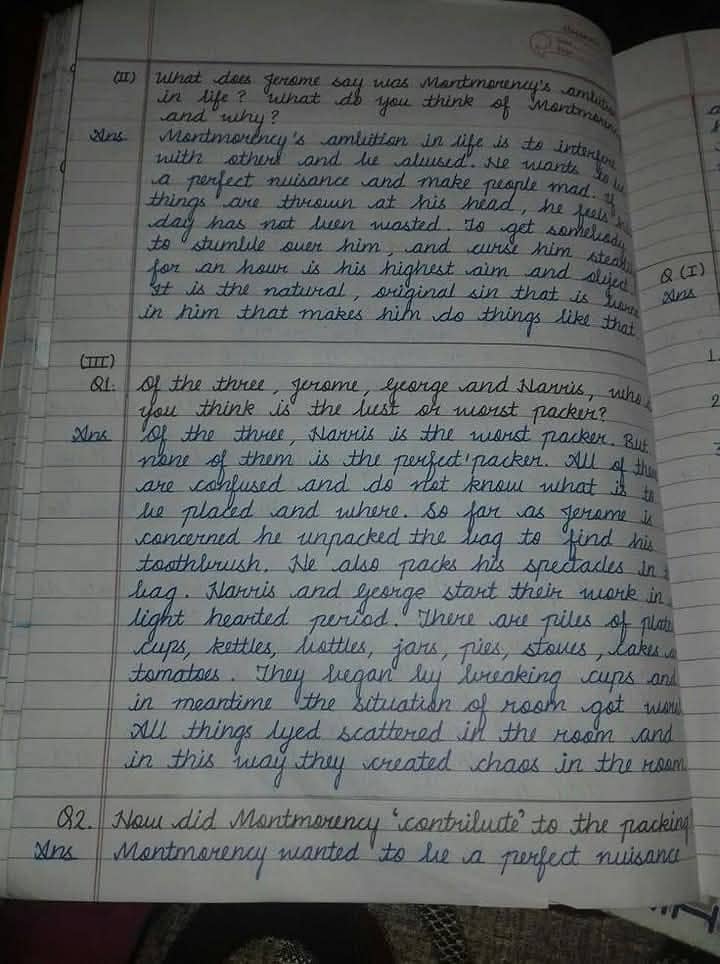 (II) What does Jerome say was Montmorency's
in life? What do you think of
and why?
Ans Montmorency's ambition in life is to interfere
with others and be abused. He wants to be
a perfect nuisance and make people mad. If
things are thrown at his head, he feels his
day has not been wasted. To get somebody
to stumble over him, and curse him
for an hour is his highest aim and object
It is the natural, original sin that is born
in him that makes him do things like that
(III)
Q1. Of the three, Jerome, George and Harris, who
you think is the best or worst packer?
Ans Of the three, Harris is the worst packer. But
none of them is the perfect packer. All of
are confused and do not know what is to
be placed and where. So far as Jerome is
concerned he unpacked the bag to find his
toothbrush. He also packs his spectacles in
bag. Harris and George start their work in
light hearted period. There are piles of
cups, kettles, bottles, jars, pies, stoves, cakes
tomatoes. They began by breaking cups and
in meantime the situation of room got
All things lyed scattered in the room and
in this way they created chaos in the room
Q2. How did Montmorency 'contribute' to the packing
Ans Montmorency wanted to be a perfect nuisance
Q (I)
Ans
1.
2